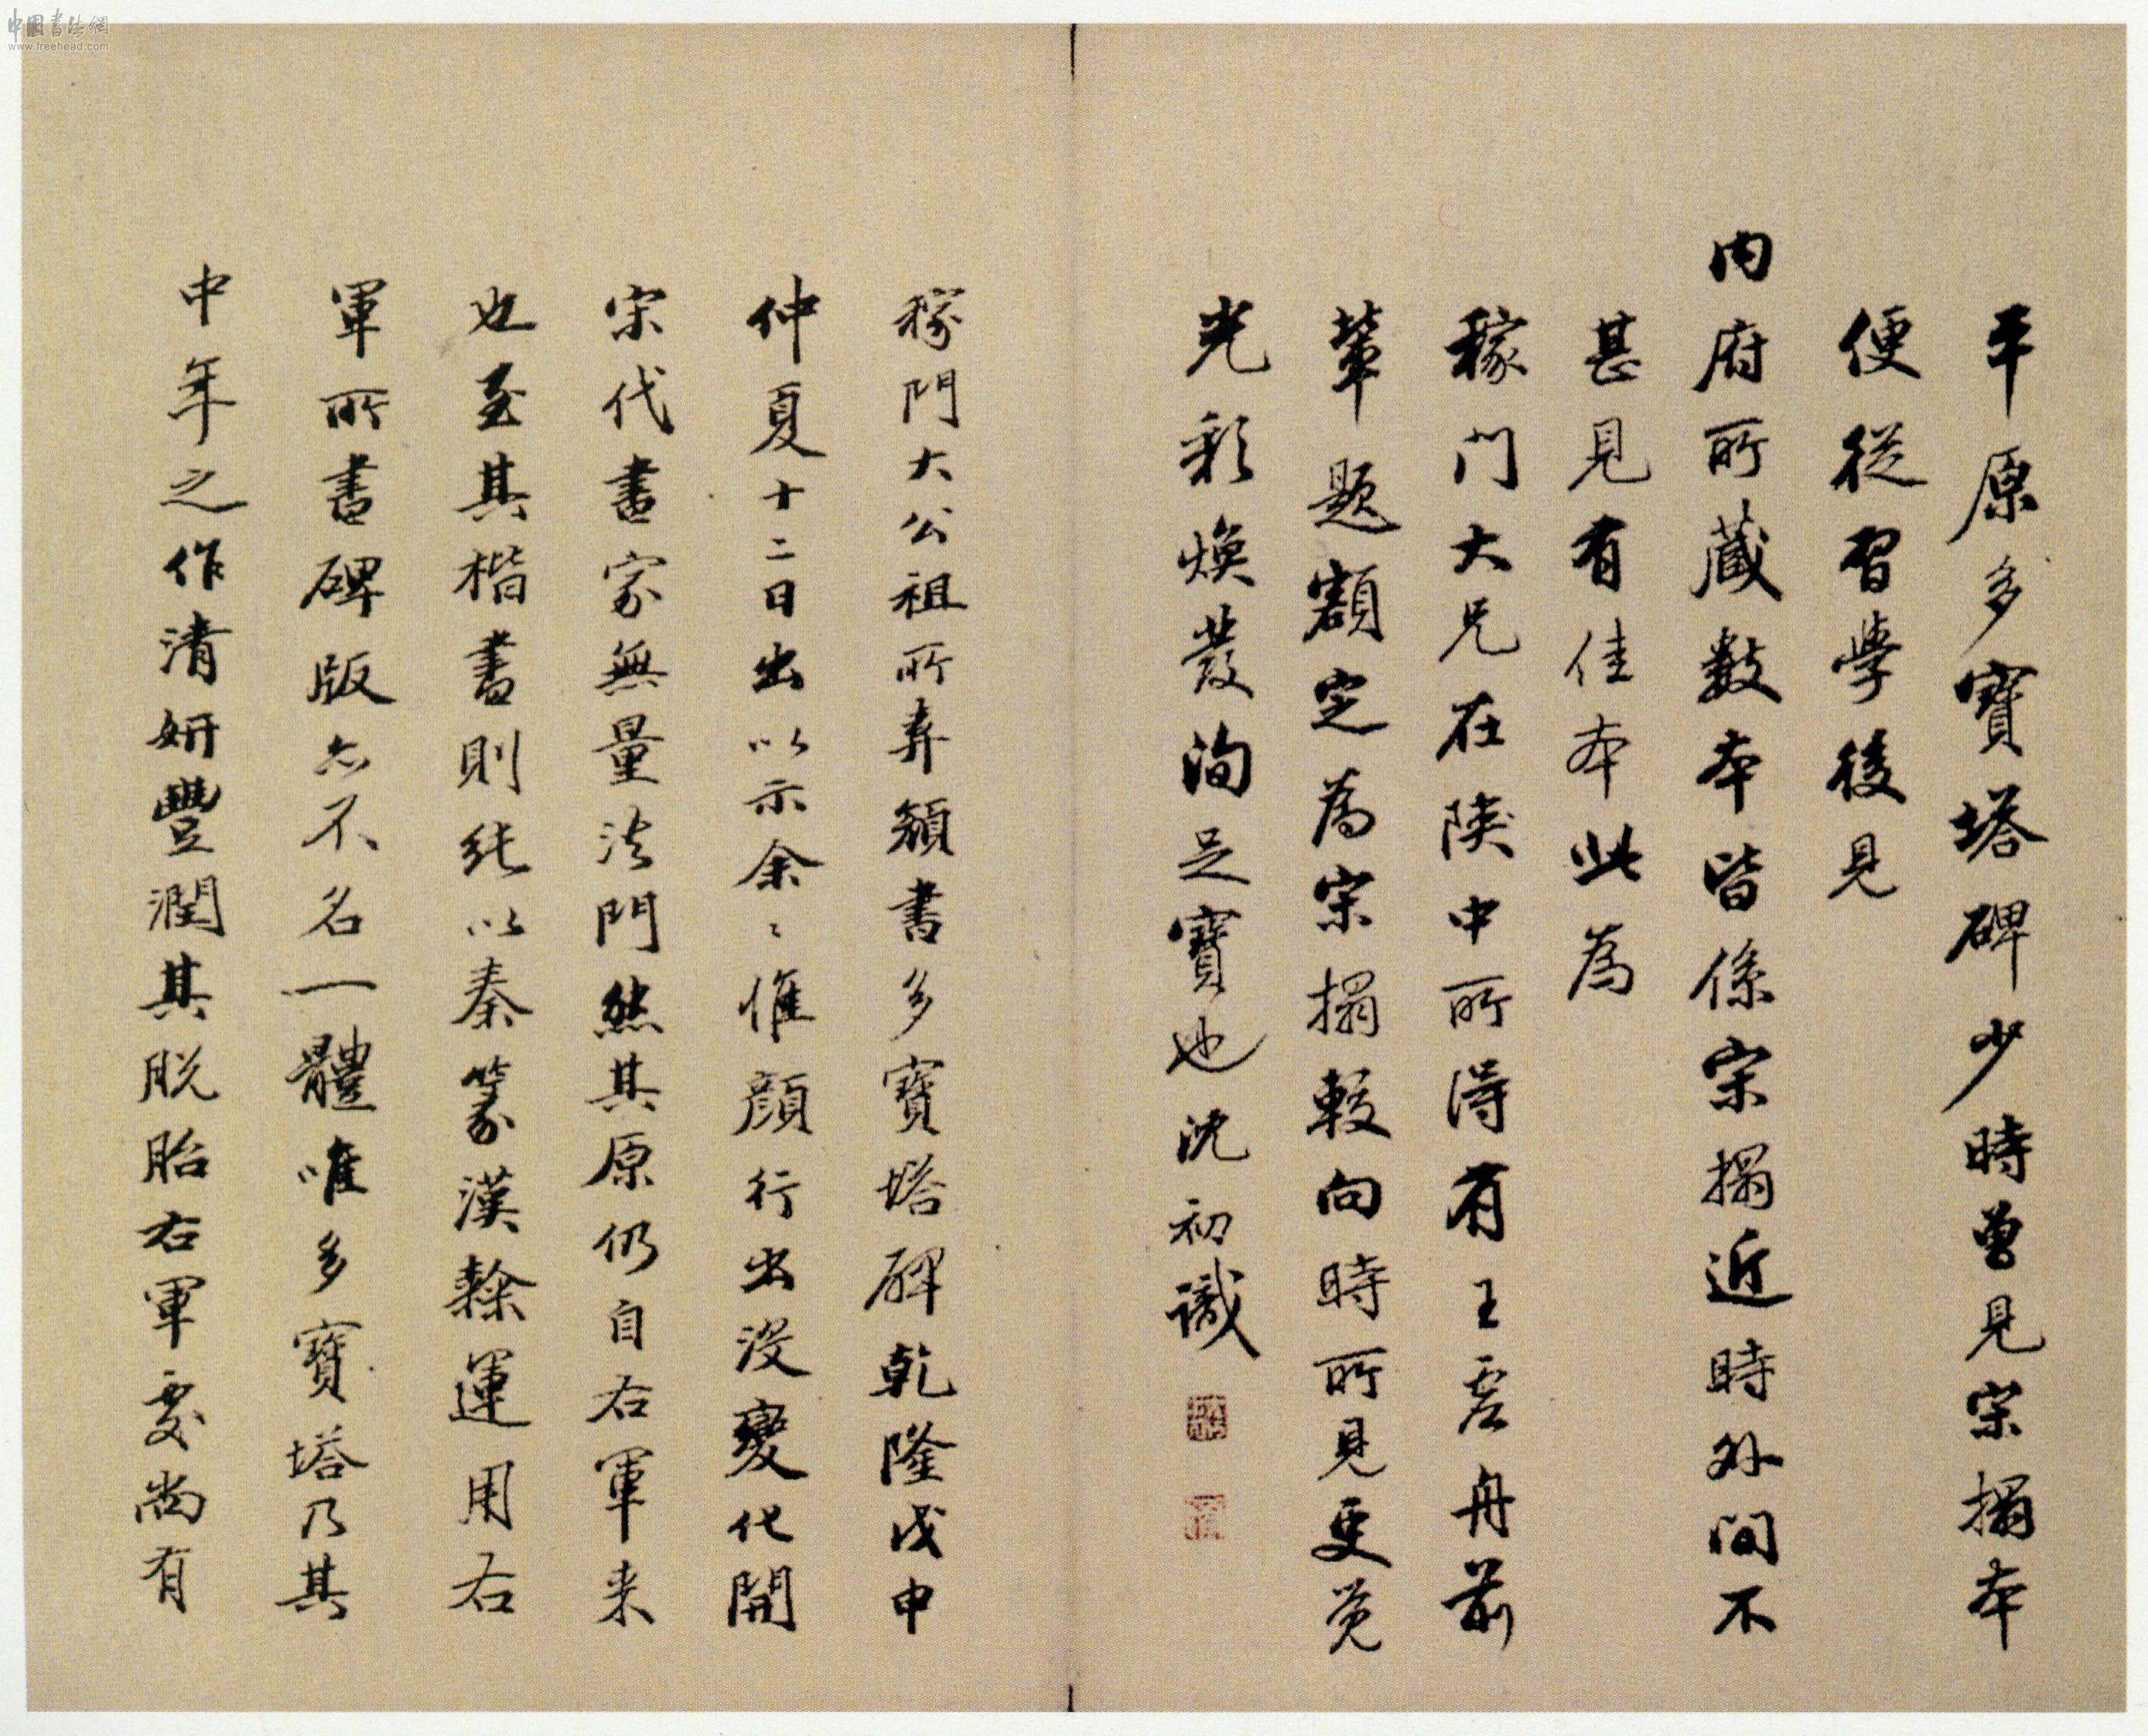 平原多寶塔碑少時曾見宋搨本
便從習學後見
內府所藏數本皆係宋搨近時外間不
甚見有佳本此為
稼門大兄在陝中所得有王虛舟前
輩題額定為宋搨較向時所見更覺
光彩煥發洵足寶也沈初識
稼門大公祖所弆顏書多寶塔碑乾隆戊申
仲夏十二日出以示余〻惟顏行出沒變化開
宋代書家無量法門然其原仍自右軍来
也至其楷書則純以秦篆漢隸運用右
軍所書碑版亦不名一體唯多寶塔乃其
中年之作清妍豐潤其脫胎右軍處尚有
中國書法網
www.freehead.com